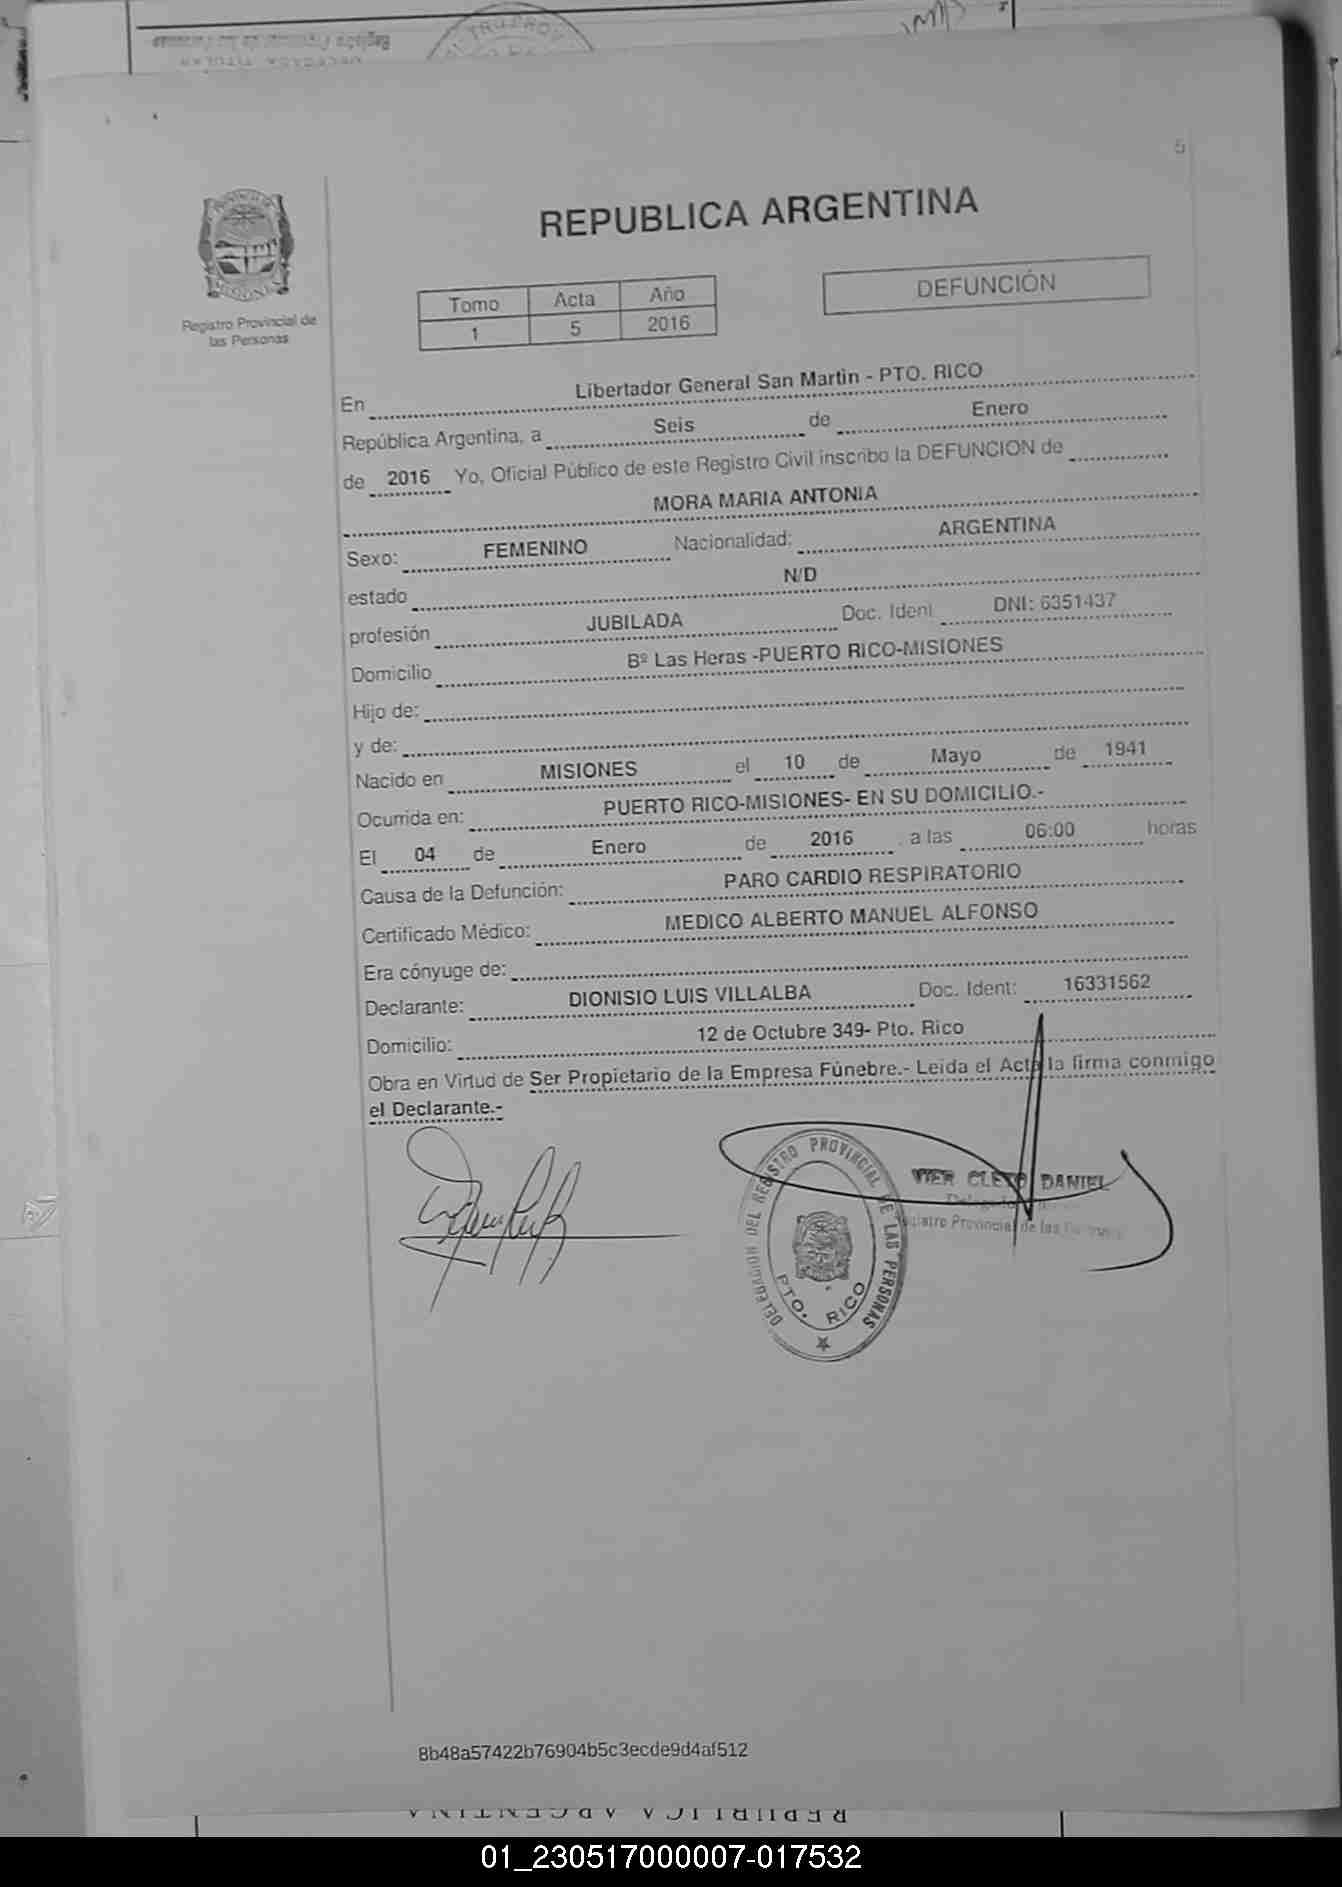 5
REPUBLICA ARGENTINA
Registro Provincial de
las Personas
Tomo Acta Año
1 5 2016
DEFUNCIÓN
En Libertador General San Martin - PTO. RICO
República Argentina, a Seis de Enero
de 2016 Yo, Oficial Público de este Registro Civil inscribo la DEFUNCION de
MORA MARIA ANTONIA
Sexo: FEMENINO Nacionalidad: ARGENTINA
estado N/D
profesión JUBILADA Doc. Ident DNI: 6351437
Domicilio Bº Las Heras -PUERTO RICO-MISIONES
Hijo de:
y de:
Nacido en MISIONES el 10 de Mayo de 1941
Ocurrida en: PUERTO RICO-MISIONES- EN SU DOMICILIO.-
El 04 de Enero de 2016 . a las 06:00 horas
Causa de la Defunción: PARO CARDIO RESPIRATORIO
Certificado Médico: MEDICO ALBERTO MANUEL ALFONSO
Era cónyuge de:
Declarante: DIONISIO LUIS VILLALBA Doc. Ident: 16331562
Domicilio: 12 de Octubre 349- Pto. Rico
Obra en Virtud de Ser Propietario de la Empresa Fúnebre.- Leida el Acta la firma conmigo
el Declarante.-
DELEGACION DEL REGISTRO PROVINCIAL DE LAS PERSONAS
PTO. RICO
VIER CLETO DANIEL
Registro Provincial de las
8b48a57422b76904b5c3ecde9d4af512
REPUBLICA ARGENTINA
01_230517000007-017532